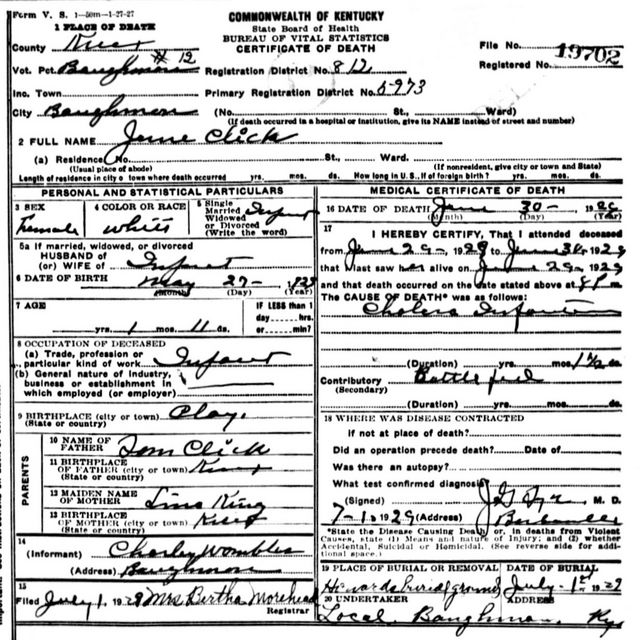 Form V. S. 1-50m-1-27-27
COMMONWEALTH OF KENTUCKY
State Board of Health
BUREAU OF VITAL STATISTICS
CERTIFICATE OF DEATH
1 PLACE OF DEATH
County Knox
File No. 19702
Registered No.
Vot. Pct. Baughman #12
Registration District No. 812
Inc. Town
Primary Registration District No. 5973
City Baughman (No. St., Ward.
(If death occurred in a hospital or institution, give its NAME instead of street and number)
2 FULL NAME June Click
(a) Residence. No. St., Ward.
(Usual place of abode) (If nonresident, give city or town and State)
Length of residence in city or town where death occurred yrs. mos. ds. How long in U. S., if of foreign birth? yrs. mos. ds.
PERSONAL AND STATISTICAL PARTICULARS
3 SEX Female
4 COLOR OR RACE White
5 Single Married Widowed or Divorced (Write the word) Infant
5a If married, widowed, or divorced
HUSBAND of
(or) WIFE of Infant
6 DATE OF BIRTH May 27-
(Month) (Day) (Year)
7 AGE
yrs. 1 mos. 11 ds.
IF LESS than 1 day hrs. or min?
8 OCCUPATION OF DECEASED
(a) Trade, profession or particular kind of work Infant
(b) General nature of Industry, business or establishment in which employed (or employer)
9 BIRTHPLACE (city or town) Clay.
(State or country)
PARENTS
10 NAME OF FATHER Tom Click
11 BIRTHPLACE OF FATHER (city or town) Knox
(State or country)
12 MAIDEN NAME OF MOTHER King
13 BIRTHPLACE OF MOTHER (city or town) Knox
(State or country)
14 (Informant) Charley Wombles
(Address) Baughman
15 Filed July 1, 1929 Mrs Bertha Morehead
Registrar
MEDICAL CERTIFICATE OF DEATH
16 DATE OF DEATH June 30- 1929
(Month) (Day) (Year)
17 I HEREBY CERTIFY, That I attended deceased
from June 29-, 1929 to June 30, 1929
that I last saw her alive on June 29-, 1929
and that death occurred on the date stated above at 8 P m
The CAUSE OF DEATH* was as follows:
Cholera Infantum
(Duration) yrs. mos. 1½ ds.
Contributory Bottle fed
(Secondary)
(Duration) yrs. mos. ds.
18 WHERE WAS DISEASE CONTRACTED
If not at place of death?
Did an operation precede death? Date of
Was there an autopsy?
What test confirmed diagnosis
(Signed) M. D.
7-1, 1929 (Address) Barbourville
*State the Disease Causing Death or, in deaths from Violent Causes, state (1) Means and nature of Injury; and (2) whether Accidental, Suicidal or Homicidal. (See reverse side for additional space.)
19 PLACE OF BURIAL OR REMOVAL
burial ground
DATE OF BURIAL
July-1st 1929
20 UNDERTAKER Local
ADDRESS Baughman Ky